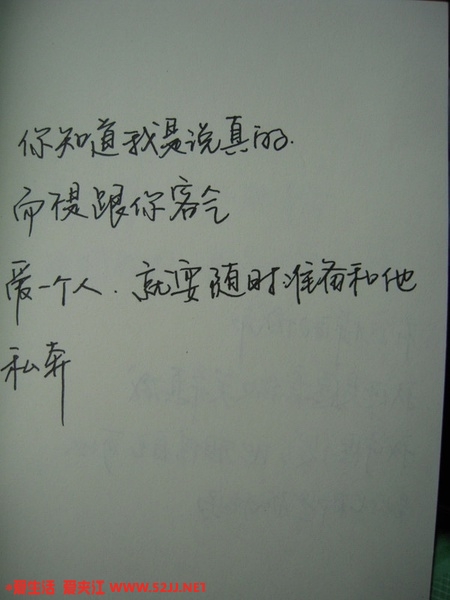 你知道我是说真的.
而不是跟你客气
爱一个人.就要随时准备和他
私奔
爱生活 爱夹江 WWW.52JJ.NET